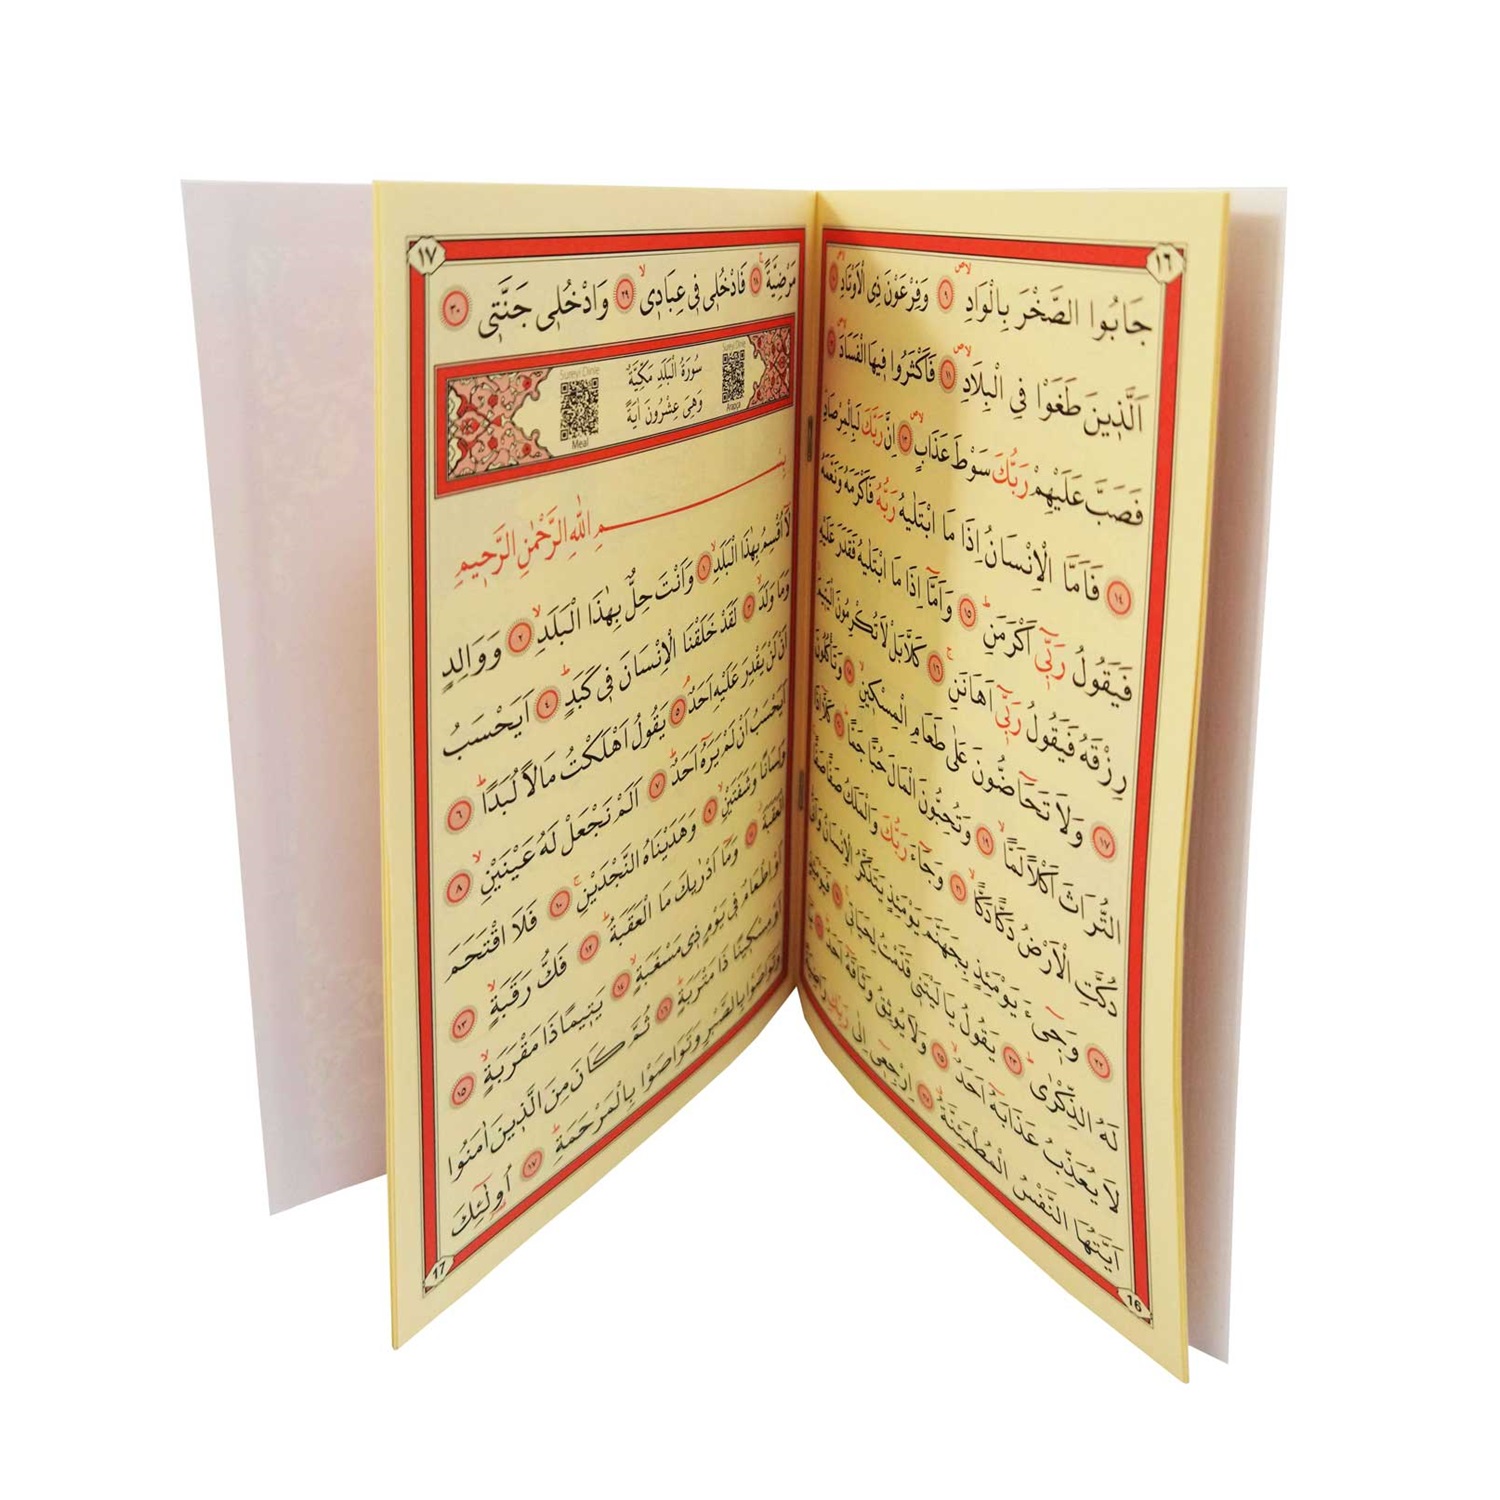 ١٦
جَابُوا الصَّخْرَ بِالْوَادِ ٩ وَفِرْعَوْنَ ذِى الْاَوْتَادِ ١٠
اَلَّذ۪ينَ طَغَوْا فِي الْبِلَادِ ١١ فَاَكْثَرُوا ف۪يهَا الْفَسَادَ ١٢
فَصَبَّ عَلَيْهِمْ رَبُّكَ سَوْطَ عَذَابٍ ١٣ اِنَّ رَبَّكَ لَبِالْمِرْصَادِ
١٤ فَاَمَّا الْاِنْسَانُ اِذَا مَا ابْتَلٰيهُ رَبُّهُ فَاَكْرَمَهُ وَنَعَّمَهُ
فَيَقُولُ رَبّ۪ٓي اَكْرَمَنِ ١٥ وَاَمَّٓا اِذَا مَا ابْتَلٰيهُ فَقَدَرَ عَلَيْهِ
رِزْقَهُ فَيَقُولُ رَبّ۪ٓي اَهَانَنِ ١٦ كَلَّا بَلْ لَا تُكْرِمُونَ الْيَت۪يمَ
١٧ وَلَا تَحَٓاضُّونَ عَلٰى طَعَامِ الْمِسْك۪ينِ ١٨ وَتَأْكُلُونَ
التُّرَاثَ اَكْلًا لَمًّا ١٩ وَتُحِبُّونَ الْمَالَ حُبًّا جَمًّا ٢٠ كَلَّٓا اِذَا
دُكَّتِ الْاَرْضُ دَكًّا دَكًّا ٢١ وَجَٓاءَ رَبُّكَ وَالْمَلَكُ صَفًّا صَفًّا
٢٢ وَج۪ٓيءَ يَوْمَئِذٍ بِجَهَنَّمَ يَوْمَئِذٍ يَتَذَكَّرُ الْاِنْسَانُ وَاَنّٰى
لَهُ الذِّكْرٰى ٢٣ يَقُولُ يَا لَيْتَن۪ي قَدَّمْتُ لِحَيَات۪ي ٢٤ فَيَوْمَئِذٍ
لَا يُعَذِّبُ عَذَابَهُٓ اَحَدٌ ٢٥ وَلَا يُوثِقُ وَثَاقَهُٓ اَحَدٌ ٢٦ يَٓا
اَيَّتُهَا النَّفْسُ الْمُطْمَئِنَّةُ ٢٧ اِرْجِع۪ٓي اِلٰى رَبِّكِ رَاضِيَةً
16
١٧
مَرْضِيَّةً ٢٨ فَادْخُل۪ي ف۪ي عِبَاد۪ي ٢٩ وَادْخُل۪ي جَنَّت۪ي ٣٠
سُورَةُ الْبَلَدِ مَكِّيَّةٌ
وَهِيَ عِشْرُونَ اٰيَةً
Sureyi Dinle
Arapça
Sureyi Dinle
Meal
بِسْمِ اللّٰهِ الرَّحْمٰنِ الرَّح۪يمِ
لَٓا اُقْسِمُ بِهٰذَا الْبَلَدِ ١ وَاَنْتَ حِلٌّ بِهٰذَا الْبَلَدِ ٢ وَوَالِدٍ
وَمَا وَلَدَ ٣ لَقَدْ خَلَقْنَا الْاِنْسَانَ ف۪ي كَبَدٍ ٤ اَيَحْسَبُ
اَنْ لَنْ يَقْدِرَ عَلَيْهِ اَحَدٌ ٥ يَقُولُ اَهْلَكْتُ مَالًا لُبَدًا ٦
اَيَحْسَبُ اَنْ لَمْ يَرَهُٓ اَحَدٌ ٧ اَلَمْ نَجْعَلْ لَهُ عَيْنَيْنِ ٨
وَلِسَانًا وَشَفَتَيْنِ ٩ وَهَدَيْنَاهُ النَّجْدَيْنِ ١٠ فَلَا اقْتَحَمَ
الْعَقَبَةَ ١١ وَمَٓا اَدْرٰيكَ مَا الْعَقَبَةُ ١٢ فَكُّ رَقَبَةٍ ١٣
اَوْ اِطْعَامٌ ف۪ي يَوْمٍ ذ۪ي مَسْغَبَةٍ ١٤ يَت۪يمًا ذَا مَقْرَبَةٍ ١٥
اَوْ مِسْك۪ينًا ذَا مَتْرَبَةٍ ١٦ ثُمَّ كَانَ مِنَ الَّذ۪ينَ اٰمَنُوا
وَتَوَاصَوْا بِالصَّبْرِ وَتَوَاصَوْا بِالْمَرْحَمَةِ ١٧ اُو۬لٰٓئِكَ
17